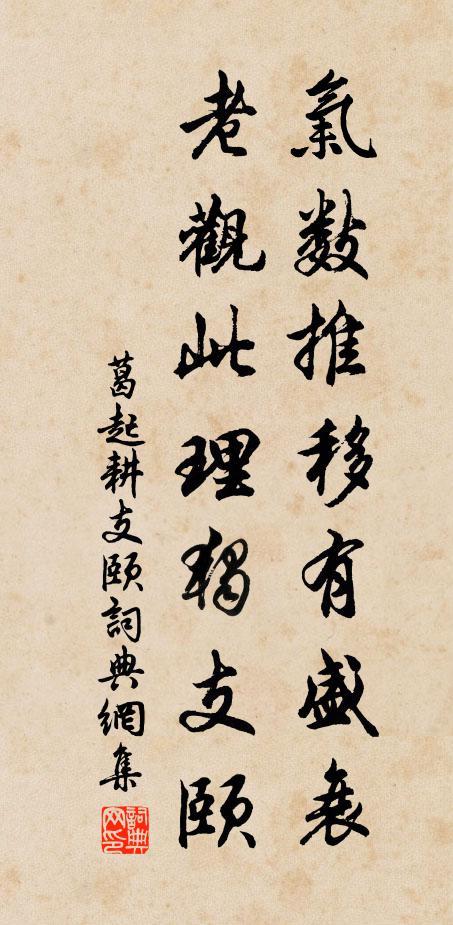 氣數推移有盛衰
老觀此理獨支頤
葛起耕支頤詞典網集
詞典网印